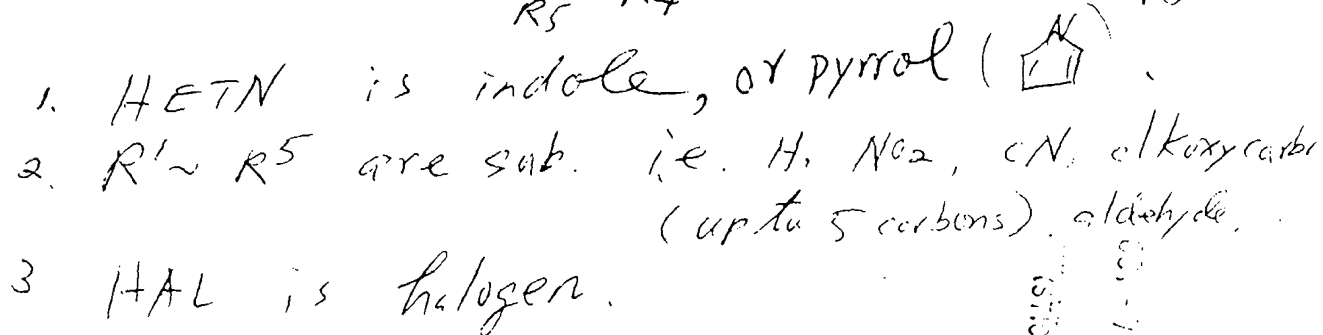 R5 R4
1. HETN is indole, or pyrrol ( N
2. R1 ~ R5 are sub. i.e. H, NO2, CN, alkoxycarbo
(up to 5 carbons), aldehyde,
3 HAL is halogen.